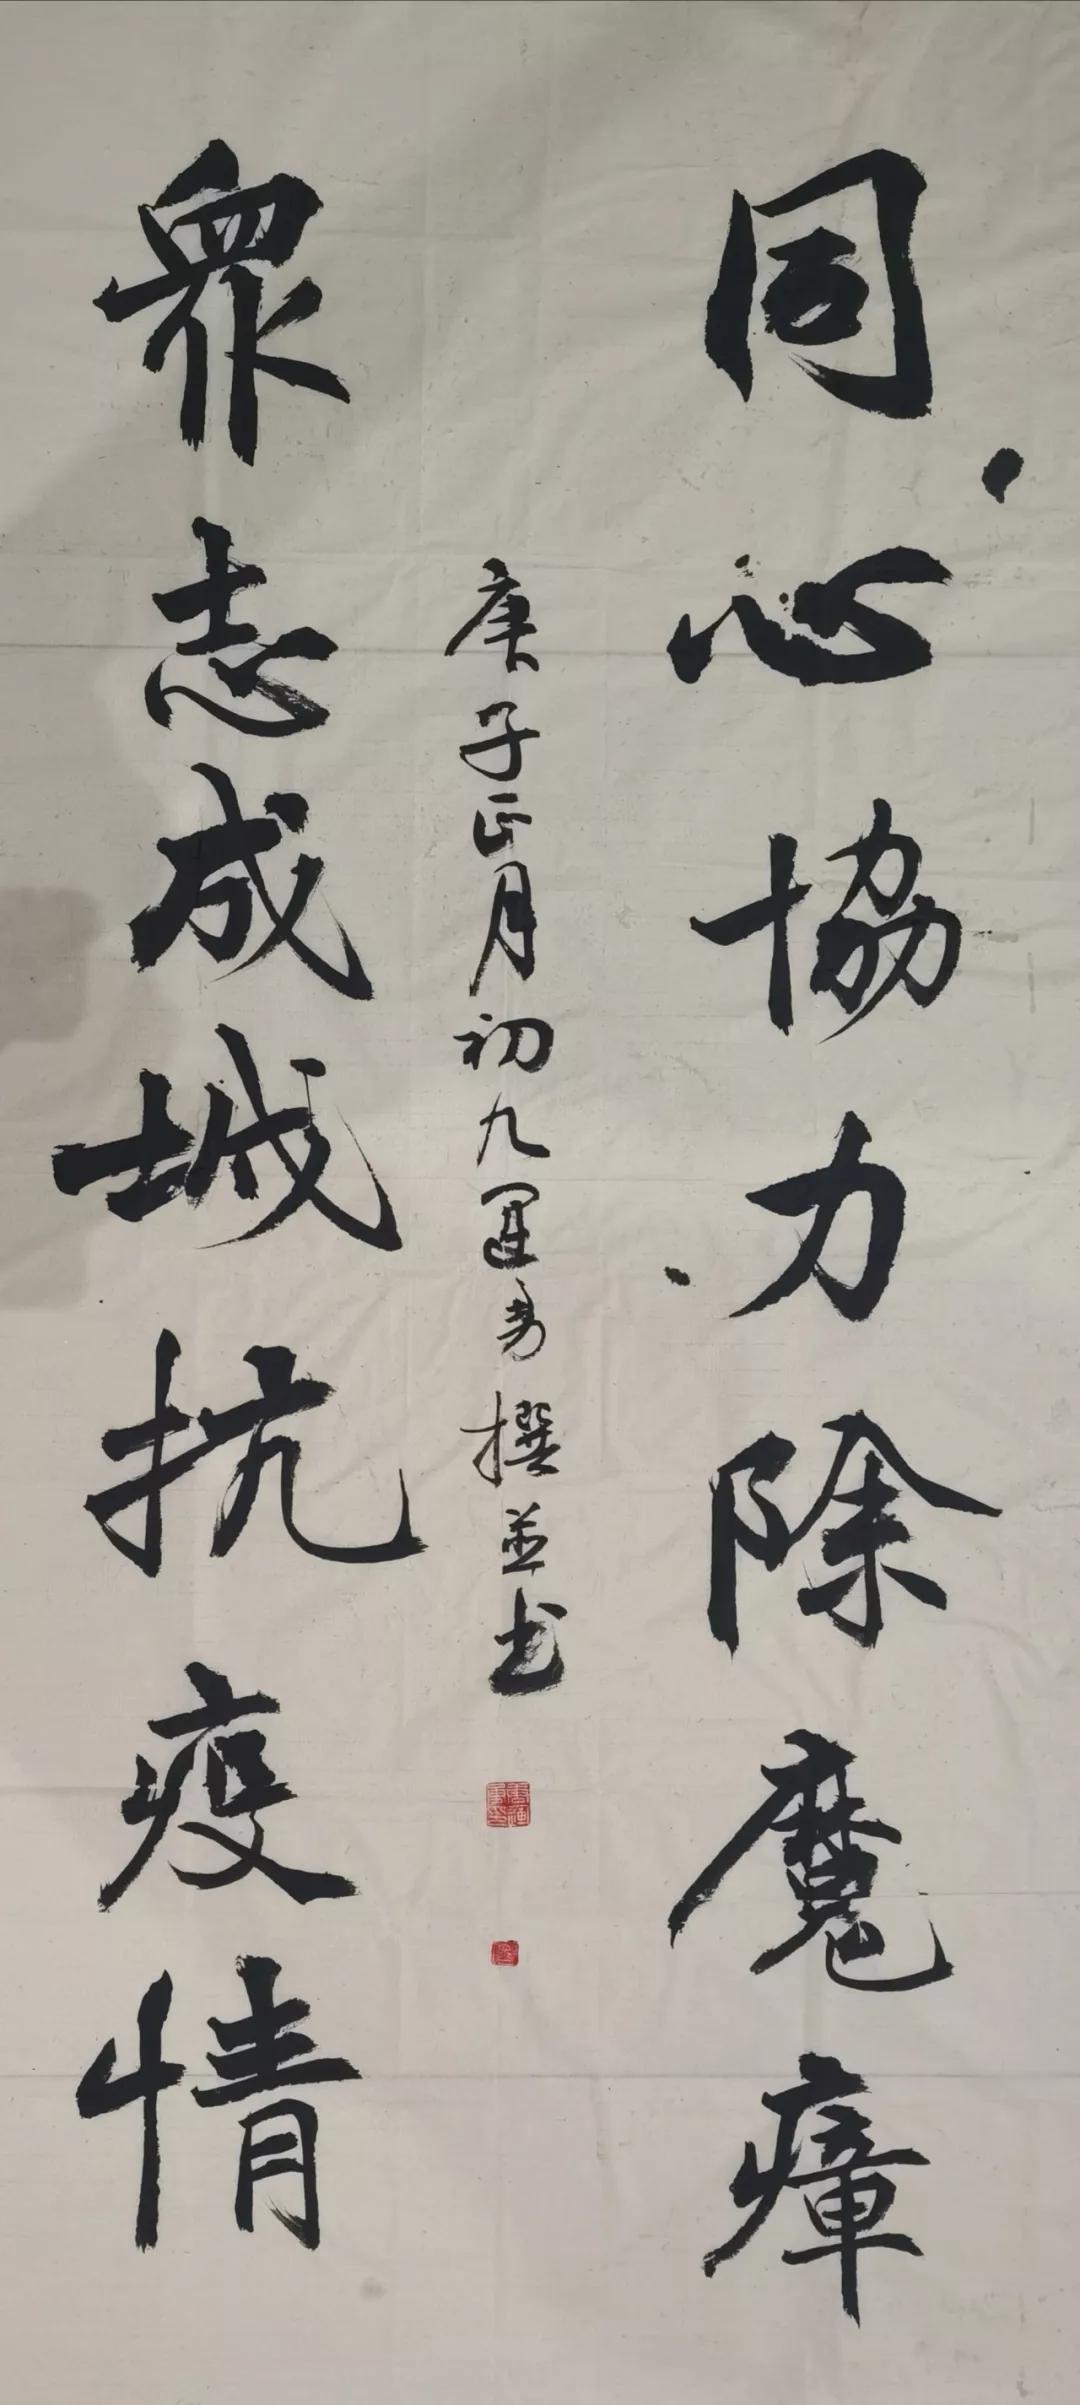 同心協力除魔瘴
衆志成城抗疫情
庚子正月初九運勇撰並书